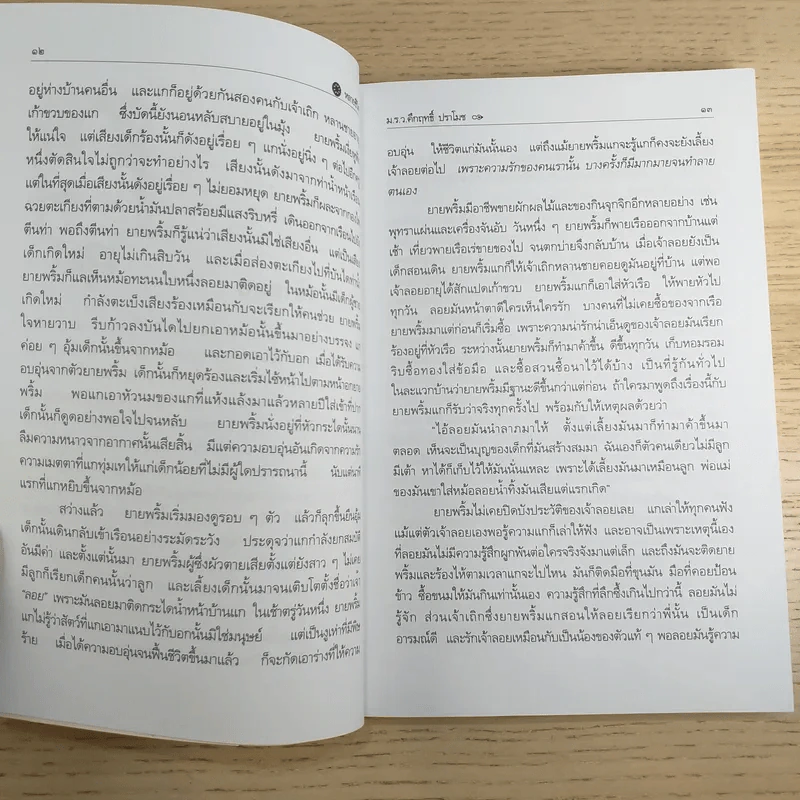 ๑๒
อยู่ห่างบ้านคนอื่น และแกก็อยู่ด้วยกันสองคนกับเจ้าเถิก หลานชาย
เก้าขวบของแก ซึ่งบัดนี้ยังนอนหลับสบายอยู่ในมุ้ง ยายพริ้ม
ให้แน่ใจ แต่เสียงเด็กร้องนั้นก็ดังอยู่เรื่อย ๆ แกนั่งอยู่นิ่ง ๆ ต่อไปอีก
หนึ่งตัดสินใจไม่ถูกว่าจะทำอย่างไร เสียงนั้นดังมาจากท่าน้ำหน้าเรือน
แต่ในที่สุดเมื่อเสียงนั้นดังอยู่เรื่อย ๆ ไม่ยอมหยุด ยายพริ้มก็ผละจาก
ฉวยตะเกียงที่ตามด้วยน้ำมันปลาสร้อยมีแสงริบหรี่ เดินออกจากเรือน
ตีนท่า พอถึงตีนท่า ยายพริ้มก็รู้แน่ว่าเสียงนั้นมิใช่เสียงอื่น แต่เป็นเสียง
เด็กเกิดใหม่ อายุไม่เกินสิบวัน และเมื่อส่องตะเกียงไปที่บันไดท่าน้ำ
ยายพริ้มก็แลเห็นหม้อทะนนใบหนึ่งลอยมาติดอยู่ ในหม้อนั้นมีเด็กผู้ชาย
เกิดใหม่ กำลังตะเบ็งเสียงร้องเหมือนกับจะเรียกให้คนช่วย ยายพริ้ม
ใจหายวาบ รีบก้าวลงบันไดไปยกเอาหม้อนั้นขึ้นมาอย่างบรรจง
ค่อย ๆ อุ้มเด็กนั้นขึ้นจากหม้อ และกอดเอาไว้กับอก เมื่อได้รับความ
อบอุ่นจากตัวยายพริ้ม เด็กนั้นก็หยุดร้องและเริ่มไซ้หน้าไปตามหน้าอกยาย
พริ้ม พอแกเอาหัวนมของแกที่แห้งแล้งมาแล้วหลายปีใส่เข้าที่ปาก
เด็กนั้นก็ดูดอย่างพอใจไปจนหลับ ยายพริ้มนั่งอยู่ที่หัวกระไดนั้นนาน
ลืมความหนาวจากอากาศนั้นเสียสิ้น มีแต่ความอบอุ่นอันเกิดจากความรัก
ความเมตตาที่แกทุ่มเทให้แก่เด็กน้อยที่ไม่มีผู้ใดปรารถนานี้ นับแต่นาที
แรกที่แกหยิบขึ้นจากหม้อ
สว่างแล้ว ยายพริ้มเริ่มมองดูรอบ ๆ ตัว แล้วก็ลุกขึ้นยืนอุ้ม
เด็กนั้นเดินกลับเข้าเรือนอย่างระมัดระวัง ประดุจว่าแกกำลังยกสมบัติ
อันมีค่า และตั้งแต่นั้นมา ยายพริ้มผู้ซึ่งผัวตายเสียตั้งแต่ยังสาว ๆ ไม่เคย
มีลูกก็เรียกเด็กคนนั้นว่าลูก และเลี้ยงเด็กนั้นมาจนเติบโตตั้งชื่อว่าเจ้า
"ลอย" เพราะมันลอยมาติดกระไดน้ำหน้าบ้านแก ในเช้าตรู่วันหนึ่ง ยายพริ้ม
แกไม่รู้ว่าสัตว์ที่แกเอามาแนบไว้กับอกนั้นมิใช่มนุษย์ แต่เป็นงูเห่าที่มีพิษ
ร้าย เมื่อได้ความอบอุ่นจนฟื้นชีวิตขึ้นมาแล้ว ก็จะกัดเอาร่างที่ให้ความ
ม.ร.ว.คึกฤทธิ์ ปราโมช ๑๓
อบอุ่น ให้ชีวิตแก่มันนั้นเอง แต่ถึงแม้ยายพริ้มแกจะรู้แกก็คงจะยังเลี้ยง
เจ้าลอยต่อไป เพราะความรักของคนเรานั้น บางครั้งก็มีมากมายจนทำลาย
ตนเอง
ยายพริ้มมีอาชีพขายผักผลไม้และของกินจุกจิกอีกหลายอย่าง เช่น
พุทราแผ่นและเครื่องจันอับ วันหนึ่ง ๆ ยายพริ้มก็พายเรือออกจากบ้านแต่
เช้า เที่ยวพายเรือเร่ขายของไป จนตกบ่ายจึงกลับบ้าน เมื่อเจ้าลอยยังเป็น
เด็กสอนเดิน ยายพริ้มแกก็ให้เจ้าเถิกหลานชายคอยดูมันอยู่ที่บ้าน แต่พอ
เจ้าลอยอายุได้สักแปดเก้าขวบ ยายพริ้มก็แกก็เอาใส่หัวเรือ ให้พายหัวไป
ทุกวัน ลอยมันหน้าตาดีใครเห็นใครรัก บางคนที่ไม่เคยซื้อของจากเรือ
ยายพริ้มมาแต่ก่อนก็เริ่มซื้อ เพราะความน่ารักน่าเอ็นดูของเจ้าลอยมันเรียก
ร้องอยู่ที่หัวเรือ ระหว่างนั้นยายพริ้มก็ทำมาค้าขึ้น ดีขึ้นทุกวัน เก็บหอมรอม
ริบซื้อทองใส่ข้อมือ และซื้อสวนซื้อนาไว้ได้บ้าง เป็นที่รู้กันทั่วไป
ในละแวกบ้านว่ายายพริ้มมีฐานะดีขึ้นกว่าแต่ก่อน ถ้าใครมาพูดถึงเรื่องนี้กับ
ยายพริ้มแกก็รับว่าจริงทุกครั้งไป พร้อมกับให้เหตุผลด้วยว่า
"ไอ้ลอยมันนำลาภมาให้ ตั้งแต่เลี้ยงมันมาก็ทำมาค้าขึ้นมา
ตลอด เห็นจะเป็นบุญของเด็กที่มันสร้างสมมา ฉันเองก็ตัวคนเดียวไม่มีลูก
มีเต้า หาได้ก็เก็บไว้ให้มันนั่นแหละ เพราะได้เลี้ยงมันมาเหมือนลูก พ่อแม่
ของมันเขาใส่หม้อลอยน้ำทิ้งมันเสียแต่แรกเกิด"
ยายพริ้มไม่เคยปิดบังประวัติของเจ้าลอยเลย แกเล่าให้ทุกคนฟัง
แม้แต่ตัวเจ้าลอยเองพอรู้ความแกก็เล่าให้ฟัง และอาจเป็นเพราะเหตุนี้เอง
ที่ลอยมันไม่มีความรู้สึกผูกพันต่อใครจริงจังมาแต่เล็ก และถึงมันจะติดยาย
พริ้มและร้องไห้ตามเวลาแกจะไปไหน มันก็ติดมือที่ขุนมัน มือที่คอยป้อน
ข้าว ซื้อขนมให้มันกินเท่านั้นเอง ความรู้สึกที่ลึกซึ้งเกินไปกว่านี้ ลอยมันไม่
รู้จัก ส่วนเจ้าเถิกซึ่งยายพริ้มแกสอนให้ลอยเรียกว่าพี่นั้น เป็นเด็ก
อารมณ์ดี และรักเจ้าลอยเหมือนกับเป็นน้องของตัวแท้ ๆ พอลอยมันรู้ความ